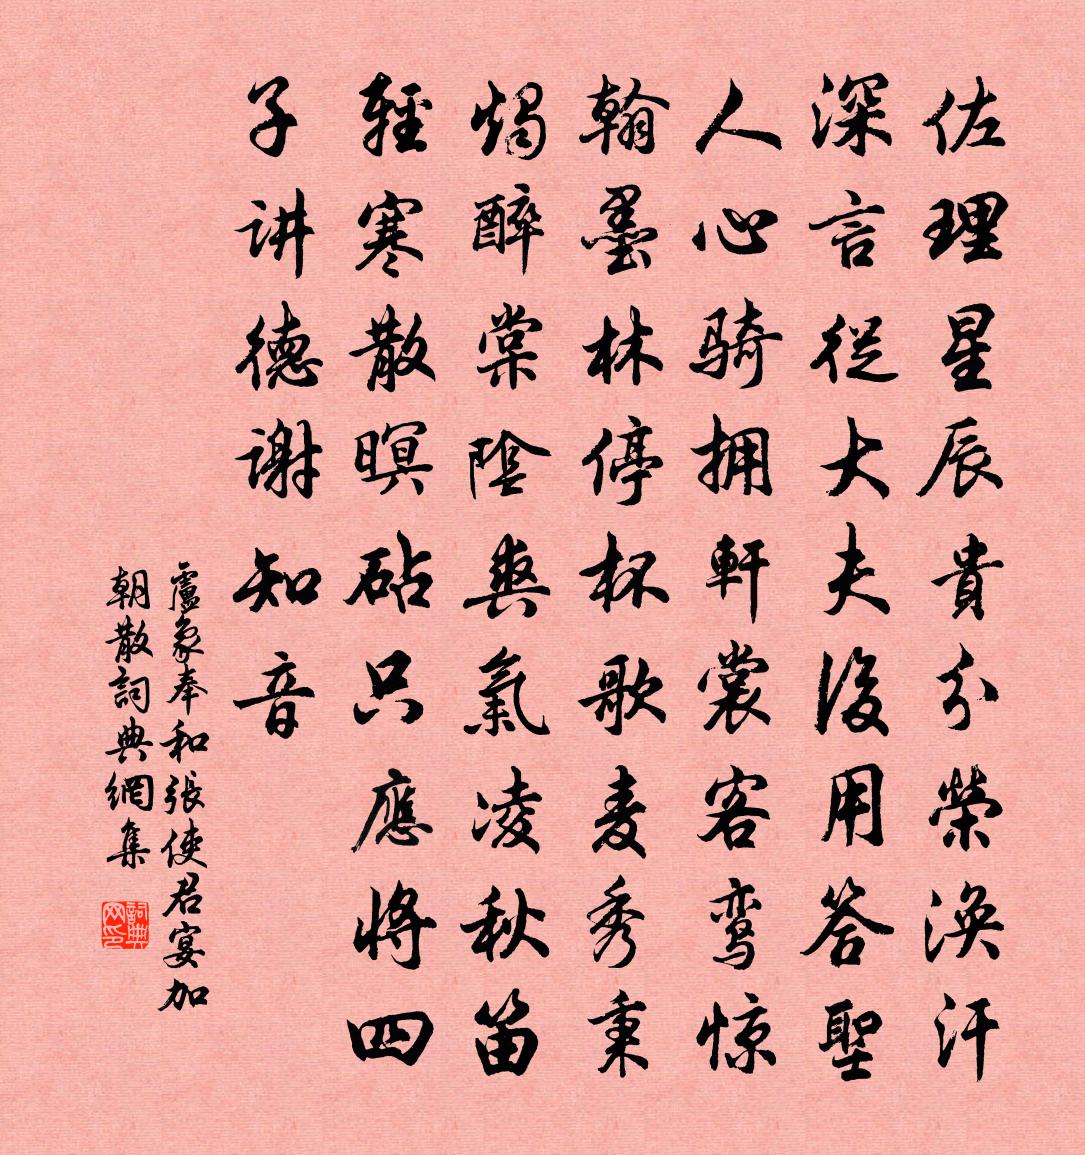 佐理星辰貴分榮渙汗
深言從大夫後用答聖
人心騎拥軒裳客鸾惊
翰墨林停杯歌麦秀秉
燭醉棠陰爽氣凌秋笛
輕寒散暝砧只應将四
子讲德谢知音
盧象奉和張使君宴加
朝散詞典網集
詞典网印